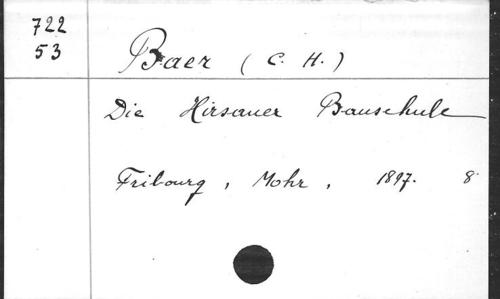 722
53
Baer (C. H.)
Die Hirsauer Bauschule
Fribourg, Mohr, 1897. 8°